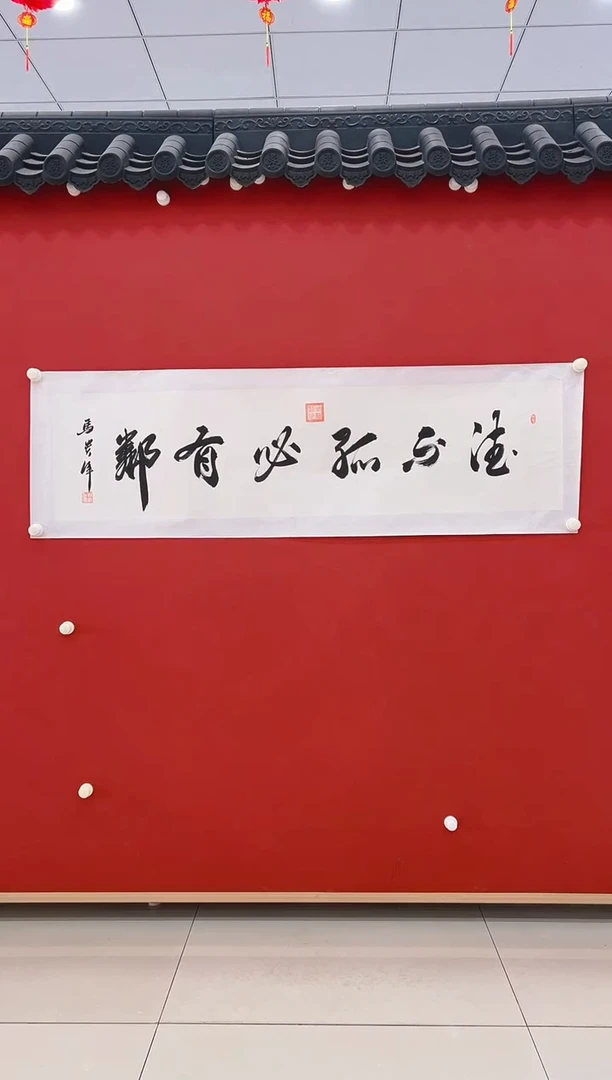 德不孤必有鄰
馬世偉